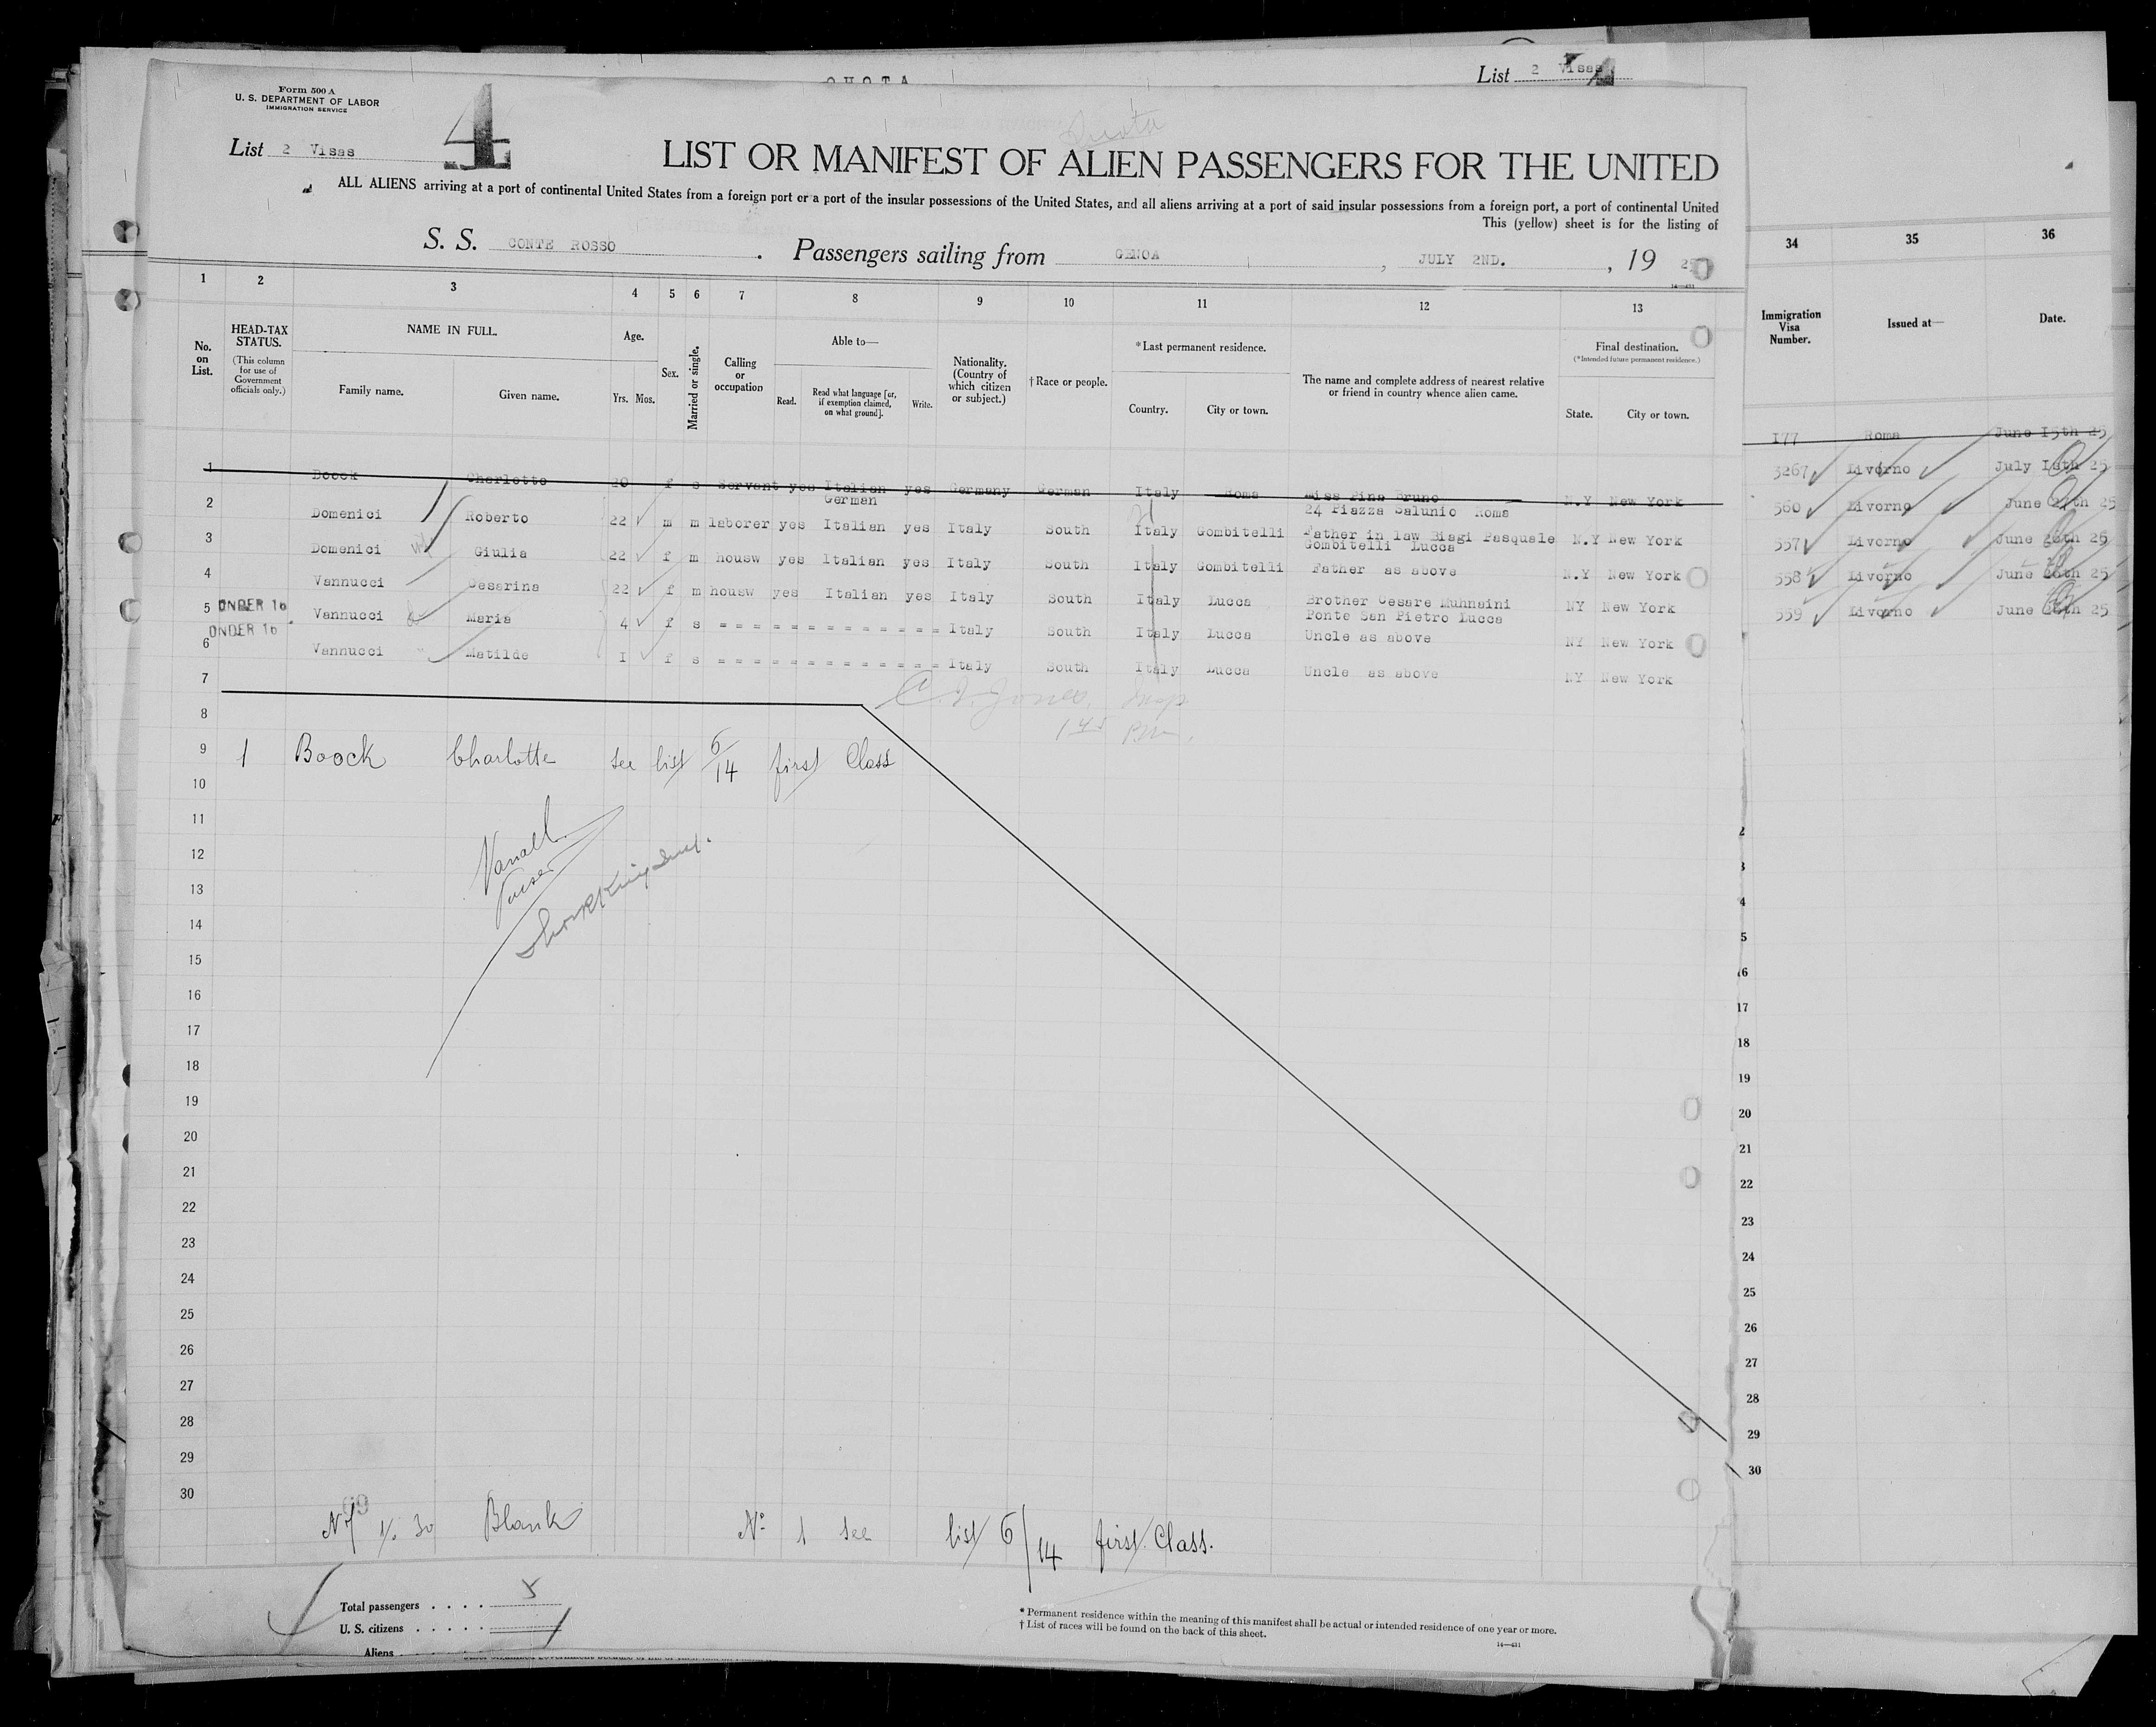 QUOTA
List 2 Visas
Form 500 A
U. S. DEPARTMENT OF LABOR
IMMIGRATION SERVICE
List 2 Visas 4
Quota
LIST OR MANIFEST OF ALIEN PASSENGERS FOR THE UNITED
ALL ALIENS arriving at a port of continental United States from a foreign port or a port of the insular possessions of the United States, and all aliens arriving at a port of said insular possessions from a foreign port, a port of continental United
This (yellow) sheet is for the listing of
S. S. CONTE ROSSO. Passengers sailing from GENOA, JULY 2ND., 19 25
14—431
1 2 3 4 5 6 7 8 9 10 11 12 13 34 35 36
No. on List.
HEAD-TAX STATUS.
(This column for use of Government officials only.)
NAME IN FULL.
Family name. Given name.
Age.
Yrs. Mos.
Sex.
Married or single.
Calling or occupation
Able to—
Read. Read what language [or, if exemption claimed, on what ground]. Write.
Nationality. (Country of which citizen or subject.)
† Race or people.
*Last permanent residence.
Country. City or town.
The name and complete address of nearest relative or friend in country whence alien came.
Final destination.
(*Intended future permanent residence.)
State. City or town.
Immigration Visa Number.
Issued at—
Date.
1 Boock Charlotte 20 f s Servant yes Italian German yes Germany German Italy Roma Miss Pina Bruno 24 Piazza Salunio Roma N.Y New York 177 Roma June 15th 25
2 Domenici Roberto 22 m m laborer yes Italian yes Italy South Italy Gombitelli Father in law Biagi Pasquale Gombitelli Lucca N.Y New York 3267 Livorno July 1st 25
3 Domenici Giulia 22 f m housw yes Italian yes Italy South Italy Gombitelli Father as above N.Y New York 560 Livorno June 27th 25
4 Vannucci Desarina 22 f m housw yes Italian yes Italy South Italy Lucca Brother Cesare Muhnaini Ponte San Pietro Lucca NY New York 557 Livorno June 26th 25
5 UNDER 16 Vannucci Maria 4 f s = = = = = = = = = = = = = Italy South Italy Lucca Uncle as above NY New York 558 Livorno June 26th 25
6 UNDER 16 Vannucci Matilde I f s = = = = = = = = = = = = = Italy South Italy Lucca Uncle as above NY New York 559 Livorno June 26th 25
7
8
C. J. Jones, Insp.
9 1 Boock Charlotte see list 6/14 first Class
10
11
12
13
14
15
16
17
18
19
20
21
22
23
24
25
26
27
28
29
30
2
3
4
5
16
17
18
19
20
21
22
23
24
25
26
27
28
29
30
N° 7 to 30 Blank N° 1 see list 6/14 first Class.
Total passengers . . . . 5
U. S. citizens . . . . .
Aliens
* Permanent residence within the meaning of this manifest shall be actual or intended residence of one year or more.
† List of races will be found on the back of this sheet.
14—431